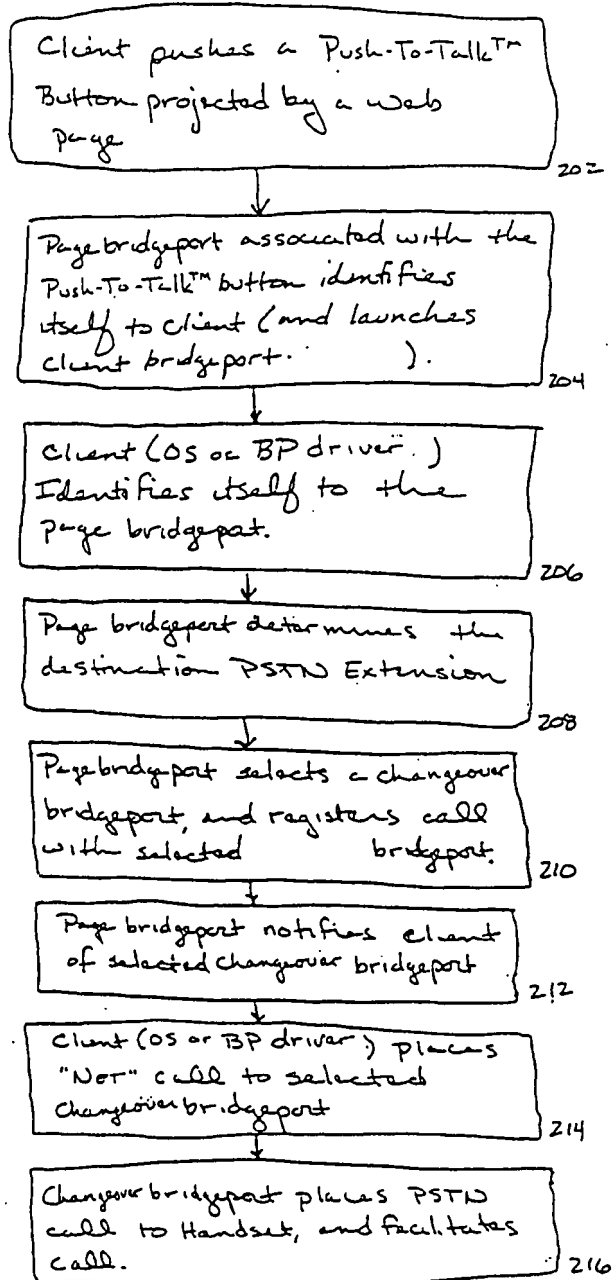 Client pushes a Push-To-Talk™
Button projected by a web
page
202
Page bridgeport associated with the
Push-To-Talk™ button identifies
itself to client (and launches
client bridgeport. ).
204
Client (OS or BP driver.)
Identifies itself to the
page bridgeport.
206
Page bridgeport determines the
destination PSTN Extension
208
Page bridgeport selects a changeover
bridgeport, and registers call
with selected bridgeport.
210
Page bridgeport notifies client
of selected changeover bridgeport
212
Client (OS or BP driver) places
"Net" call to selected
changeover bridgeport
214
Changeover bridgeport places PSTN
call to Handset, and facilitates
call.
216